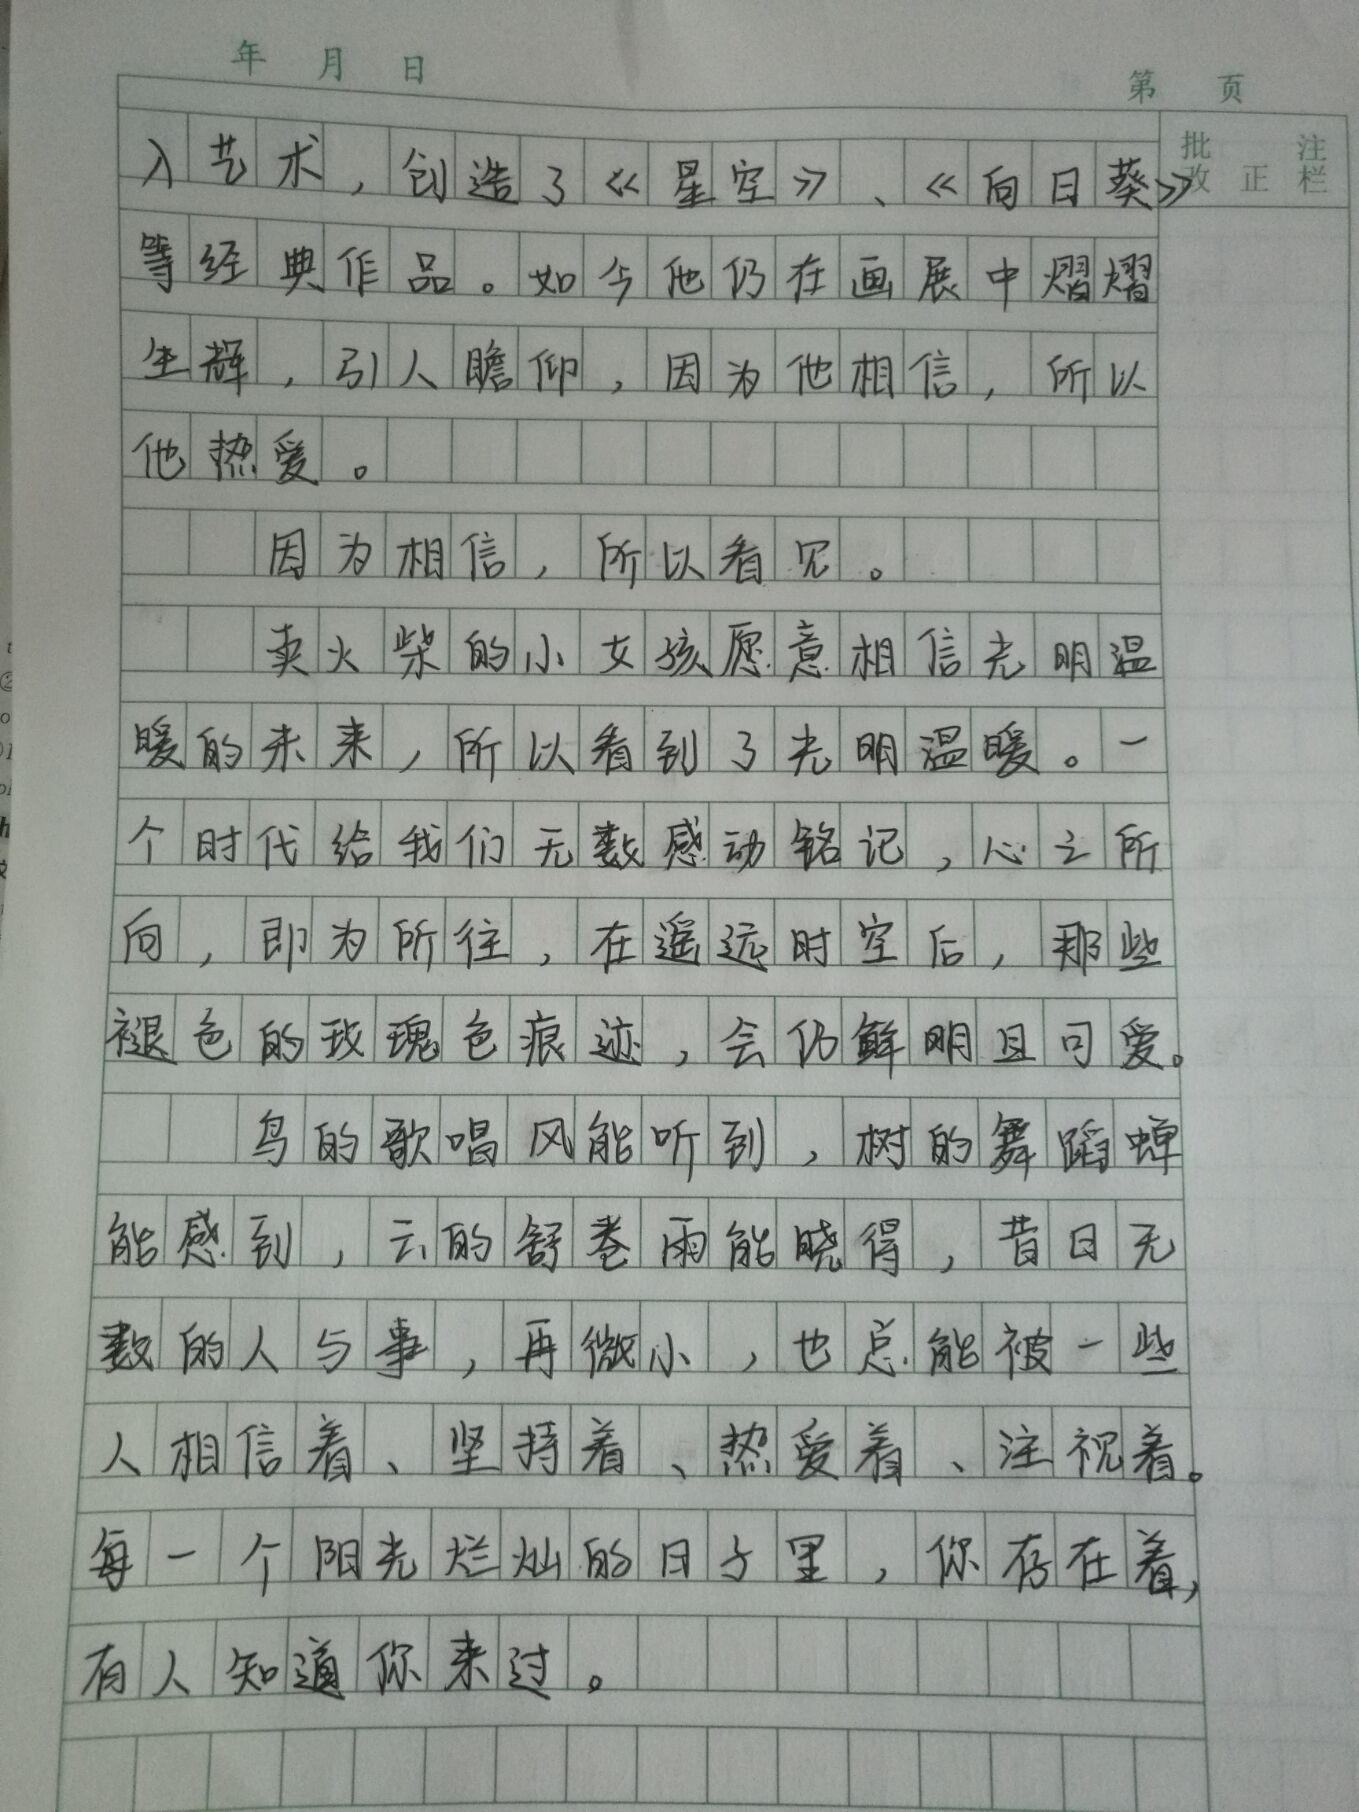 年 月 日
第 页
批 注
改 正 栏
入艺术，创造了《星空》、《向日葵》
等经典作品。如今他仍在画展中熠熠
生辉，引人瞻仰，因为他相信，所以
他热爱。
因为相信，所以看见。
卖火柴的小女孩愿意相信光明温
暖的未来，所以看到了光明温暖。一
个时代给我们无数感动铭记，心之所
向，即为所往，在遥远时空后，那些
褪色的玫瑰色痕迹，会仍鲜明且可爱。
鸟的歌唱风能听到，树的舞蹈蝉
能感到，云的舒卷雨能晓得，昔日无
数的人与事，再微小，也总能被一些
人相信着、坚持着、热爱着、注视着。
每一个阳光烂灿的日子里，你存在着，
有人知道你来过。